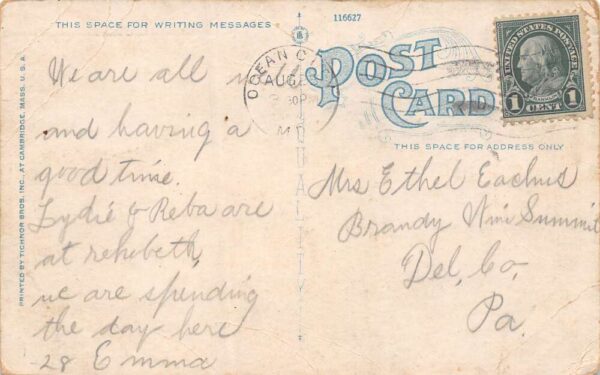 THIS SPACE FOR WRITING MESSAGES
116627
POST
CARD
UNITED STATES POSTAGE
FRANKLIN
1 CENT 1
OCEAN C
AUG
MD
THIS SPACE FOR ADDRESS ONLY
PRINTED BY TICHNOR BROS. INC., AT CAMBRIDGE, MASS. U.S.A.
QUALITY
We are all
and having a
good time.
Lydie & Reba are
at rehobeth
we are spending
the day here
28 Emma
Mrs Ethel Eachus
Brandy Wine Summit
Del, Co,
Pa.